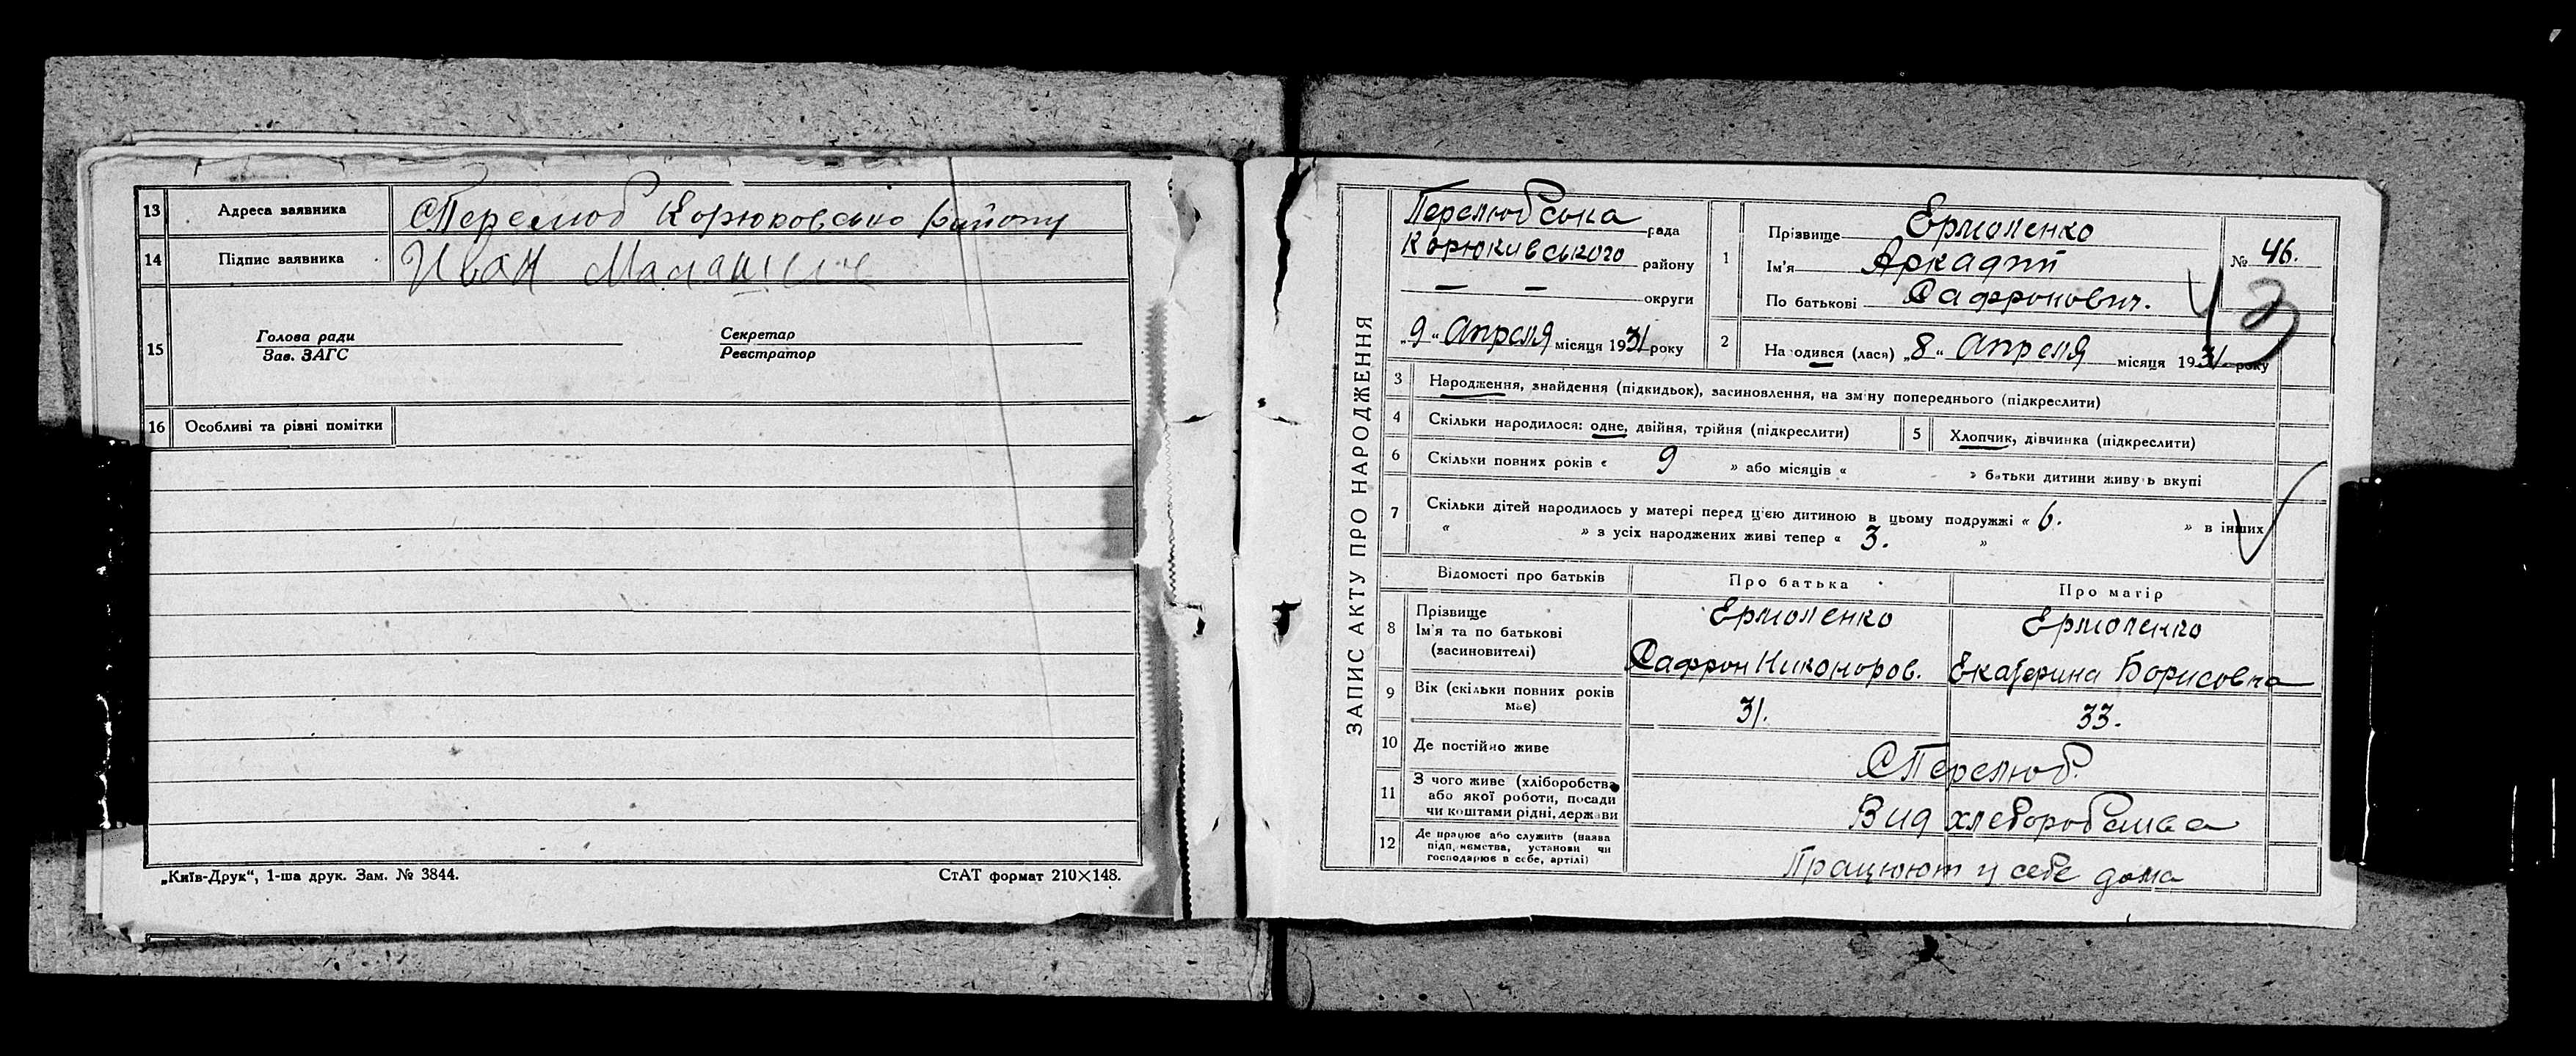 13 Адреса заявника С Перелюб Корюковсько району
14 Підпис заявника Иван
15 Голова ради Секретар
Зав. ЗАГС Реєстратор
16 Особливі та рівні помітки
„Київ-Друк“, 1-ша друк. Зам. № 3844. СтАТ формат 210×148.
ЗАПИС АКТУ ПРО НАРОДЖЕННЯ
Перелюбська рада
Корюкивського району
— — округи
„9“ Апреля місяця 1931 року
1 Прізвище Ермоленко
Ім'я Аркадий
По батькові Сафронович.
№ 46.
2 Народився (лася) „8“ Апреля місяця 1931 року
3 Народження, знайдення (підкидьок), засиновлення, на зміну попереднього (підкреслити)
4 Скільки народилося: одне, двійня, трійня (підкреслити) 5 Хлопчик, дівчинка (підкреслити)
6 Скільки повних років « 9 » або місяців « » батьки дитини живуть вкупі
7 Скільки дітей народилось у матері перед цією дитиною в цьому подружжі « 6. » в інших
« » з усіх народжених живі тепер « 3. »
Відомості про батьків Про батька Про матір
8 Прізвище Ермоленко Ермоленко
Ім'я та по батькові
(засиновителі) Сафрон Никоноров. Екатерина Борисовна
9 Вік (скільки повних років
має) 31. 33.
10 Де постійно живе С Перелюб.
11 З чого живе (хліборобства
або якої роботи, посади
чи коштами рідні, держави Вид хлеборобства
12 Де працює або служить (назва
підприємства, установи чи
господарює в себе, артілі) Працюют у себе дома